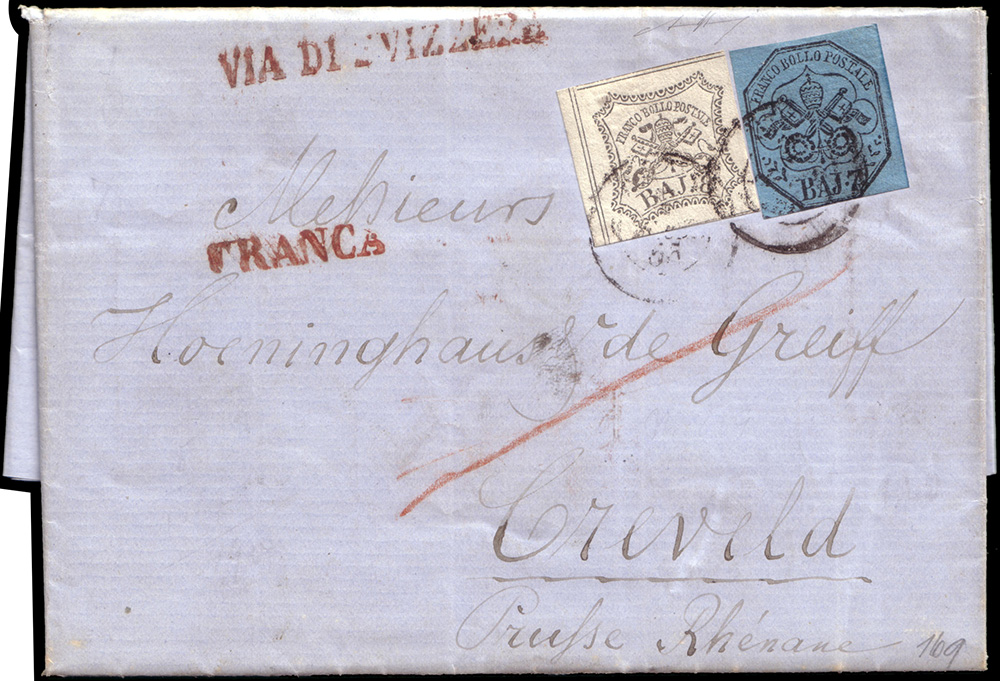 VIA DI SVIZZERA
FRANCO BOLLO POSTALE
BAJ.
FRANCO BOLLO POSTALE
BAJ. 7
Meſsieurs
FRANCA
Hoeninghaus & de Greiff
Creveld
Pruſse Rhénane
169